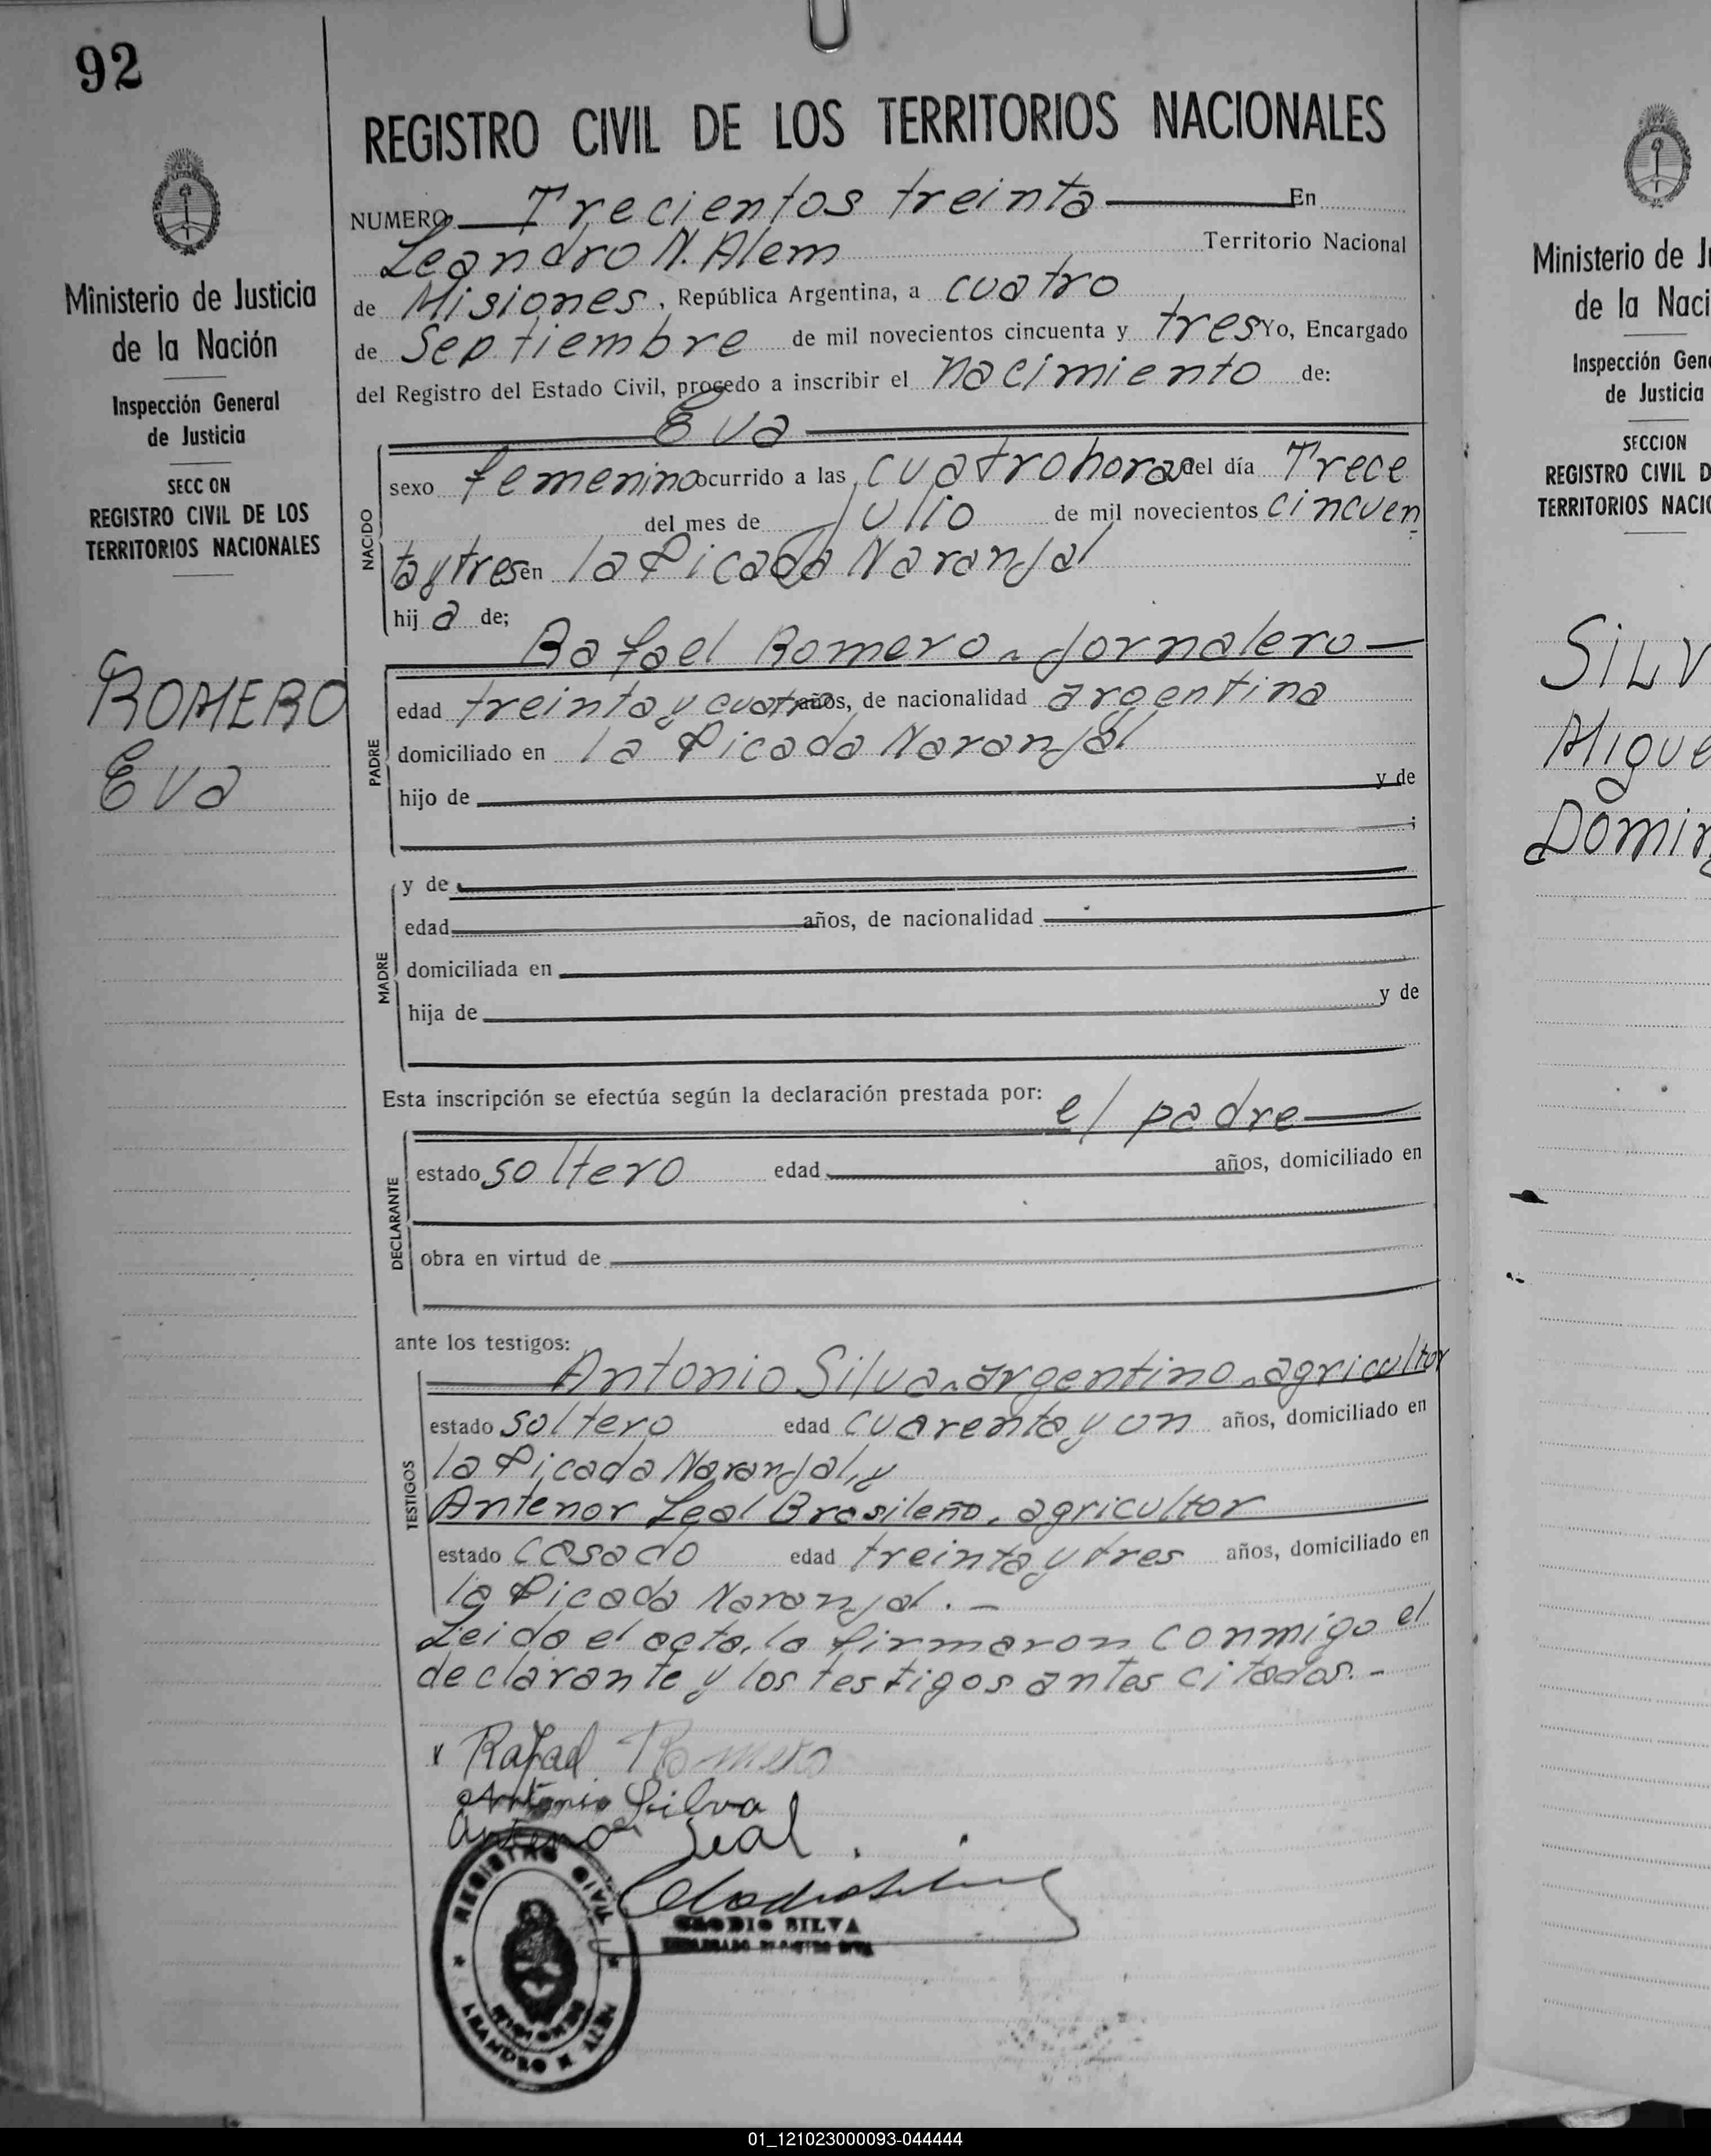 92
Ministerio de Justicia
de la Nación
Inspección General
de Justicia
SECC ON
REGISTRO CIVIL DE LOS
TERRITORIOS NACIONALES
ROMERO
Eva
REGISTRO CIVIL DE LOS TERRITORIOS NACIONALES
NUMERO Trecientos treinta En
Leandro N. Alem Territorio Nacional
de Misiones, República Argentina, a cuatro
de Septiembre de mil novecientos cincuenta y tres Yo, Encargado
del Registro del Estado Civil, procedo a inscribir el nacimiento de:
Eva
NACIDO
sexo femenino ocurrido a las cuatro horas del día Trece
del mes de Julio de mil novecientos cincuen
ta y tres en la Picada Naranjal
hij a de;
Rafael Romero - Jornalero
PADRE
edad treinta y cuatro años, de nacionalidad argentina
domiciliado en la Picada Naranjal
hijo de y de
;
MADRE
y de
edad años, de nacionalidad
domiciliada en
hija de y de
Esta inscripción se efectúa según la declaración prestada por: el padre
DECLARANTE
estado soltero edad años, domiciliado en
obra en virtud de
ante los testigos:
TESTIGOS
Antonio Silva - argentino - agricultor
estado soltero edad cuarenta y un años, domiciliado en
la Picada Naranjal, y
Antenor Leal Brasileño, agricultor
estado casado edad treinta y tres años, domiciliado en
la Picada Naranjal. -
Leido el acta, la firmaron conmigo el
declarante y los testigos antes citados. -
x Rafael Romero
Antonio Silva
Antenor Leal
CLODIO SILVA
ENCARGADO REGISTRO CIVIL
REGISTRO CIVIL
MISIONES
LEANDRO N. ALEM
Ministerio de Ju
de la Naci
Inspección Gene
de Justicia
SECCION
REGISTRO CIVIL D
TERRITORIOS NACIO
SILV
Migue
Domin
01_121023000093-044444